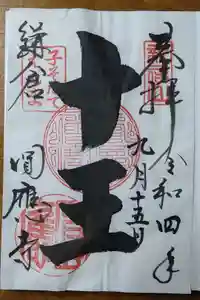 奉拝
令和四年
九月十五日
十王
鎌倉
圓應寺